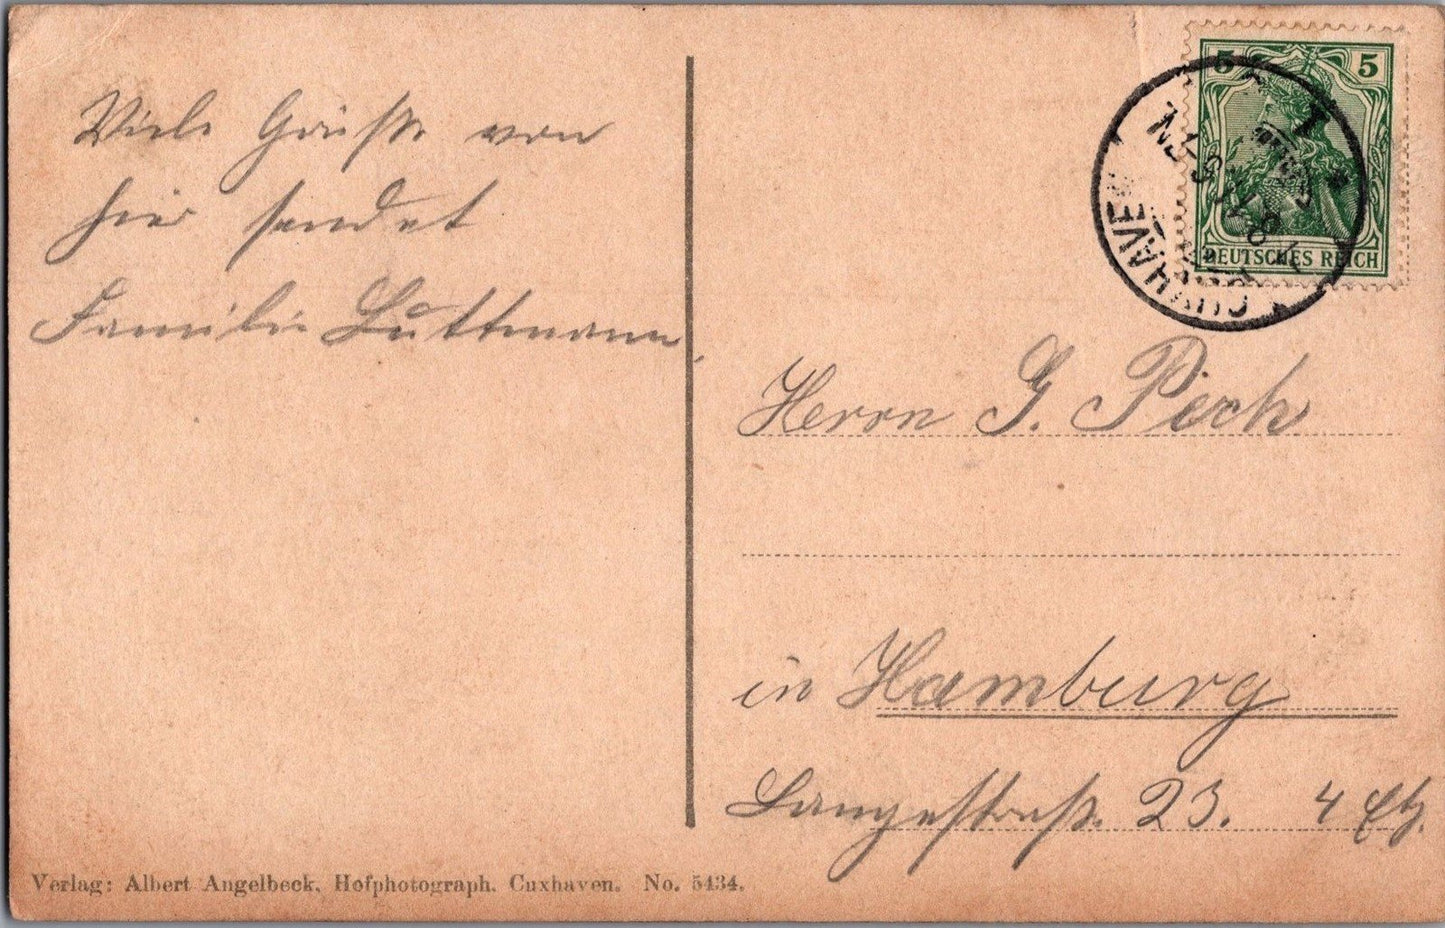 Viele Grüße von
hier sendet
Familie Luttmann.
5 5
DEUTSCHES REICH
CUXHAVEN
Herrn G. Pech
in Hamburg
Langestraß. 23. 4 Etg.
Verlag: Albert Angelbeck, Hofphotograph, Cuxhaven. No. 5434.